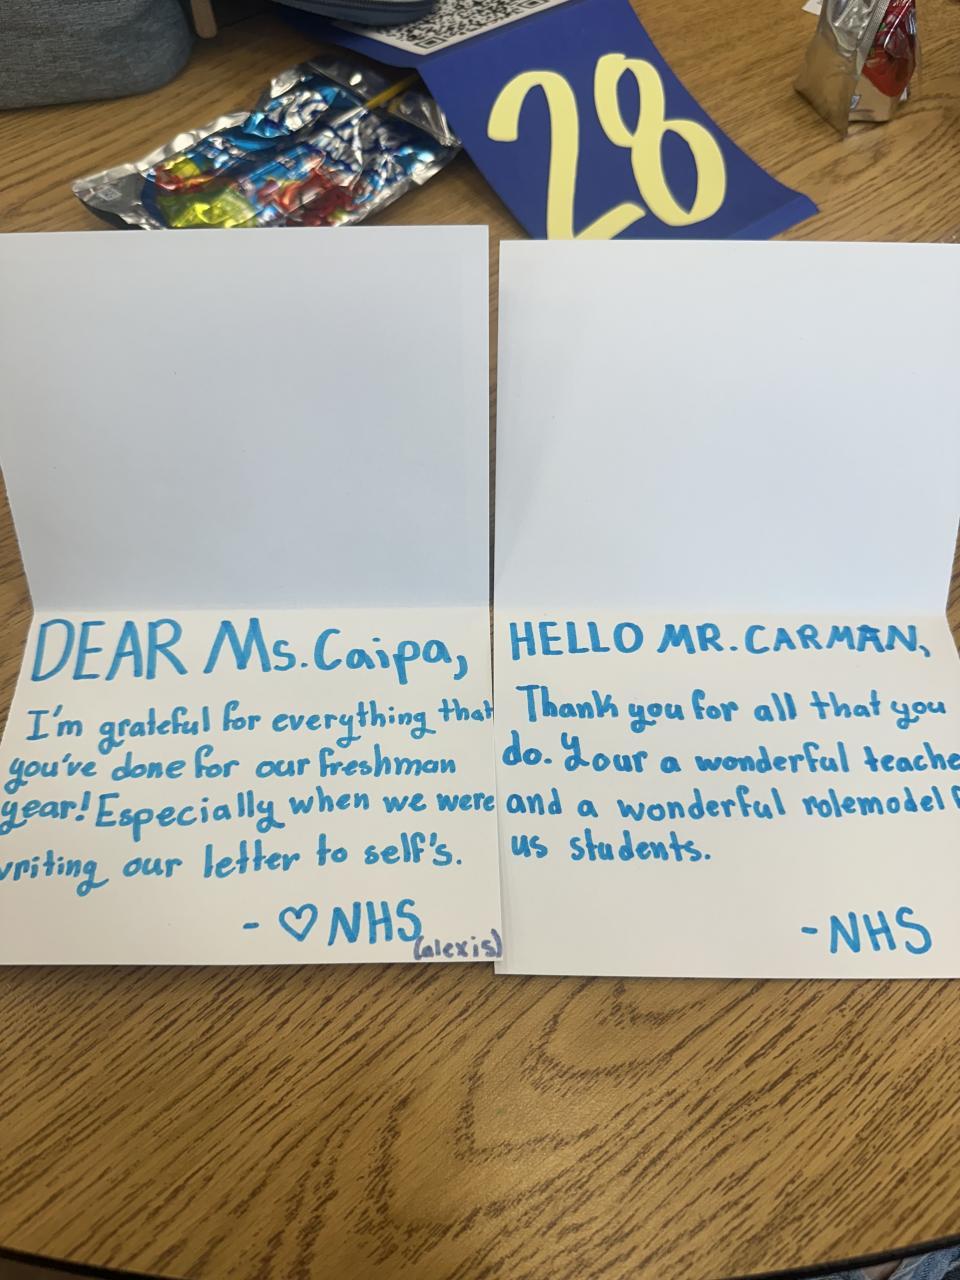 28
DEAR Ms. Caipa,
I'm grateful for everything that
you've done for our freshman
year! Especially when we were
writing our letter to self's.
- ♡ NHS
(alexis)
HELLO MR. CARMAN,
Thank you for all that you
do. Your a wonderful teache
and a wonderful rolemodel f
us students.
-NHS